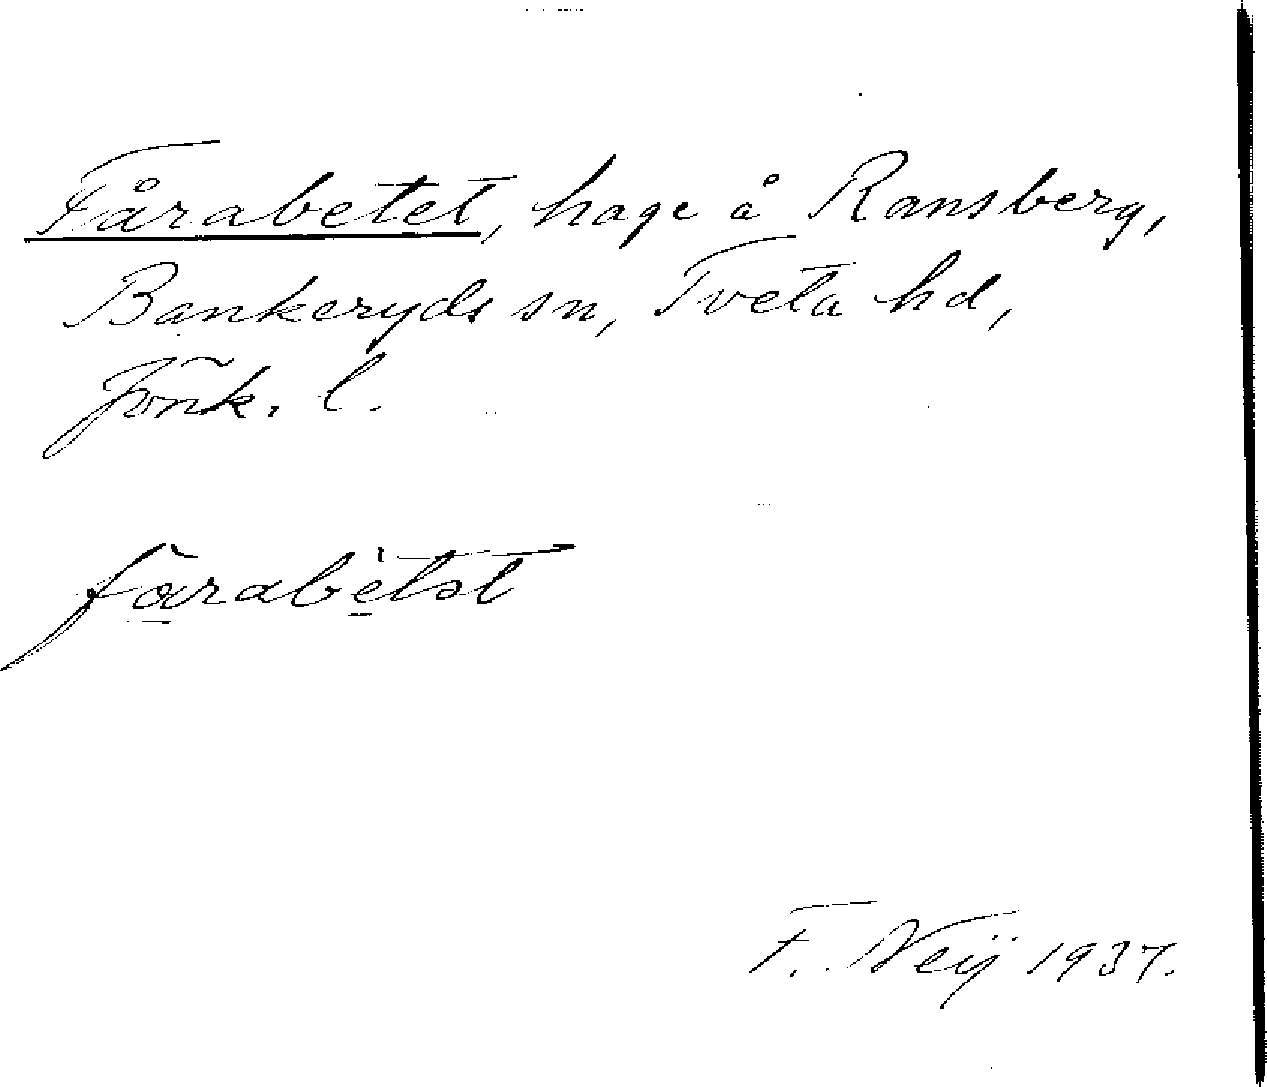 Fårabetet, hage å Ransberg,
Bankeryds sn, Tveta hd,
Jönk. l.
fårabètət
F. Neij 1937.